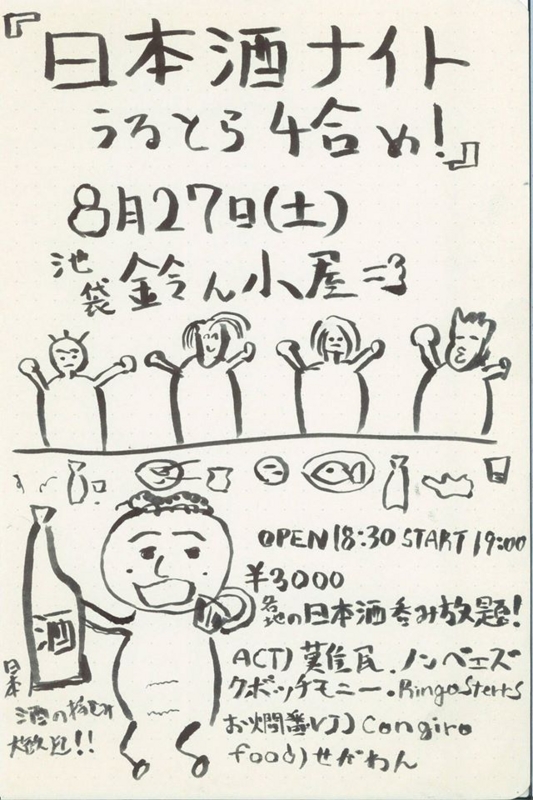 『日本酒ナイト
うるとら4合め!』
8月27日(土)
池袋 鈴ん小屋
酒
OPEN 18:30 START 19:00
¥3000
各地の日本酒呑み放題!
ACT) 難民、ノンベエズ
クボッチモニー・Ringo Sterrs
お燗番VJ) Congiro
food) せがわん
日本
酒の
大歓迎!!